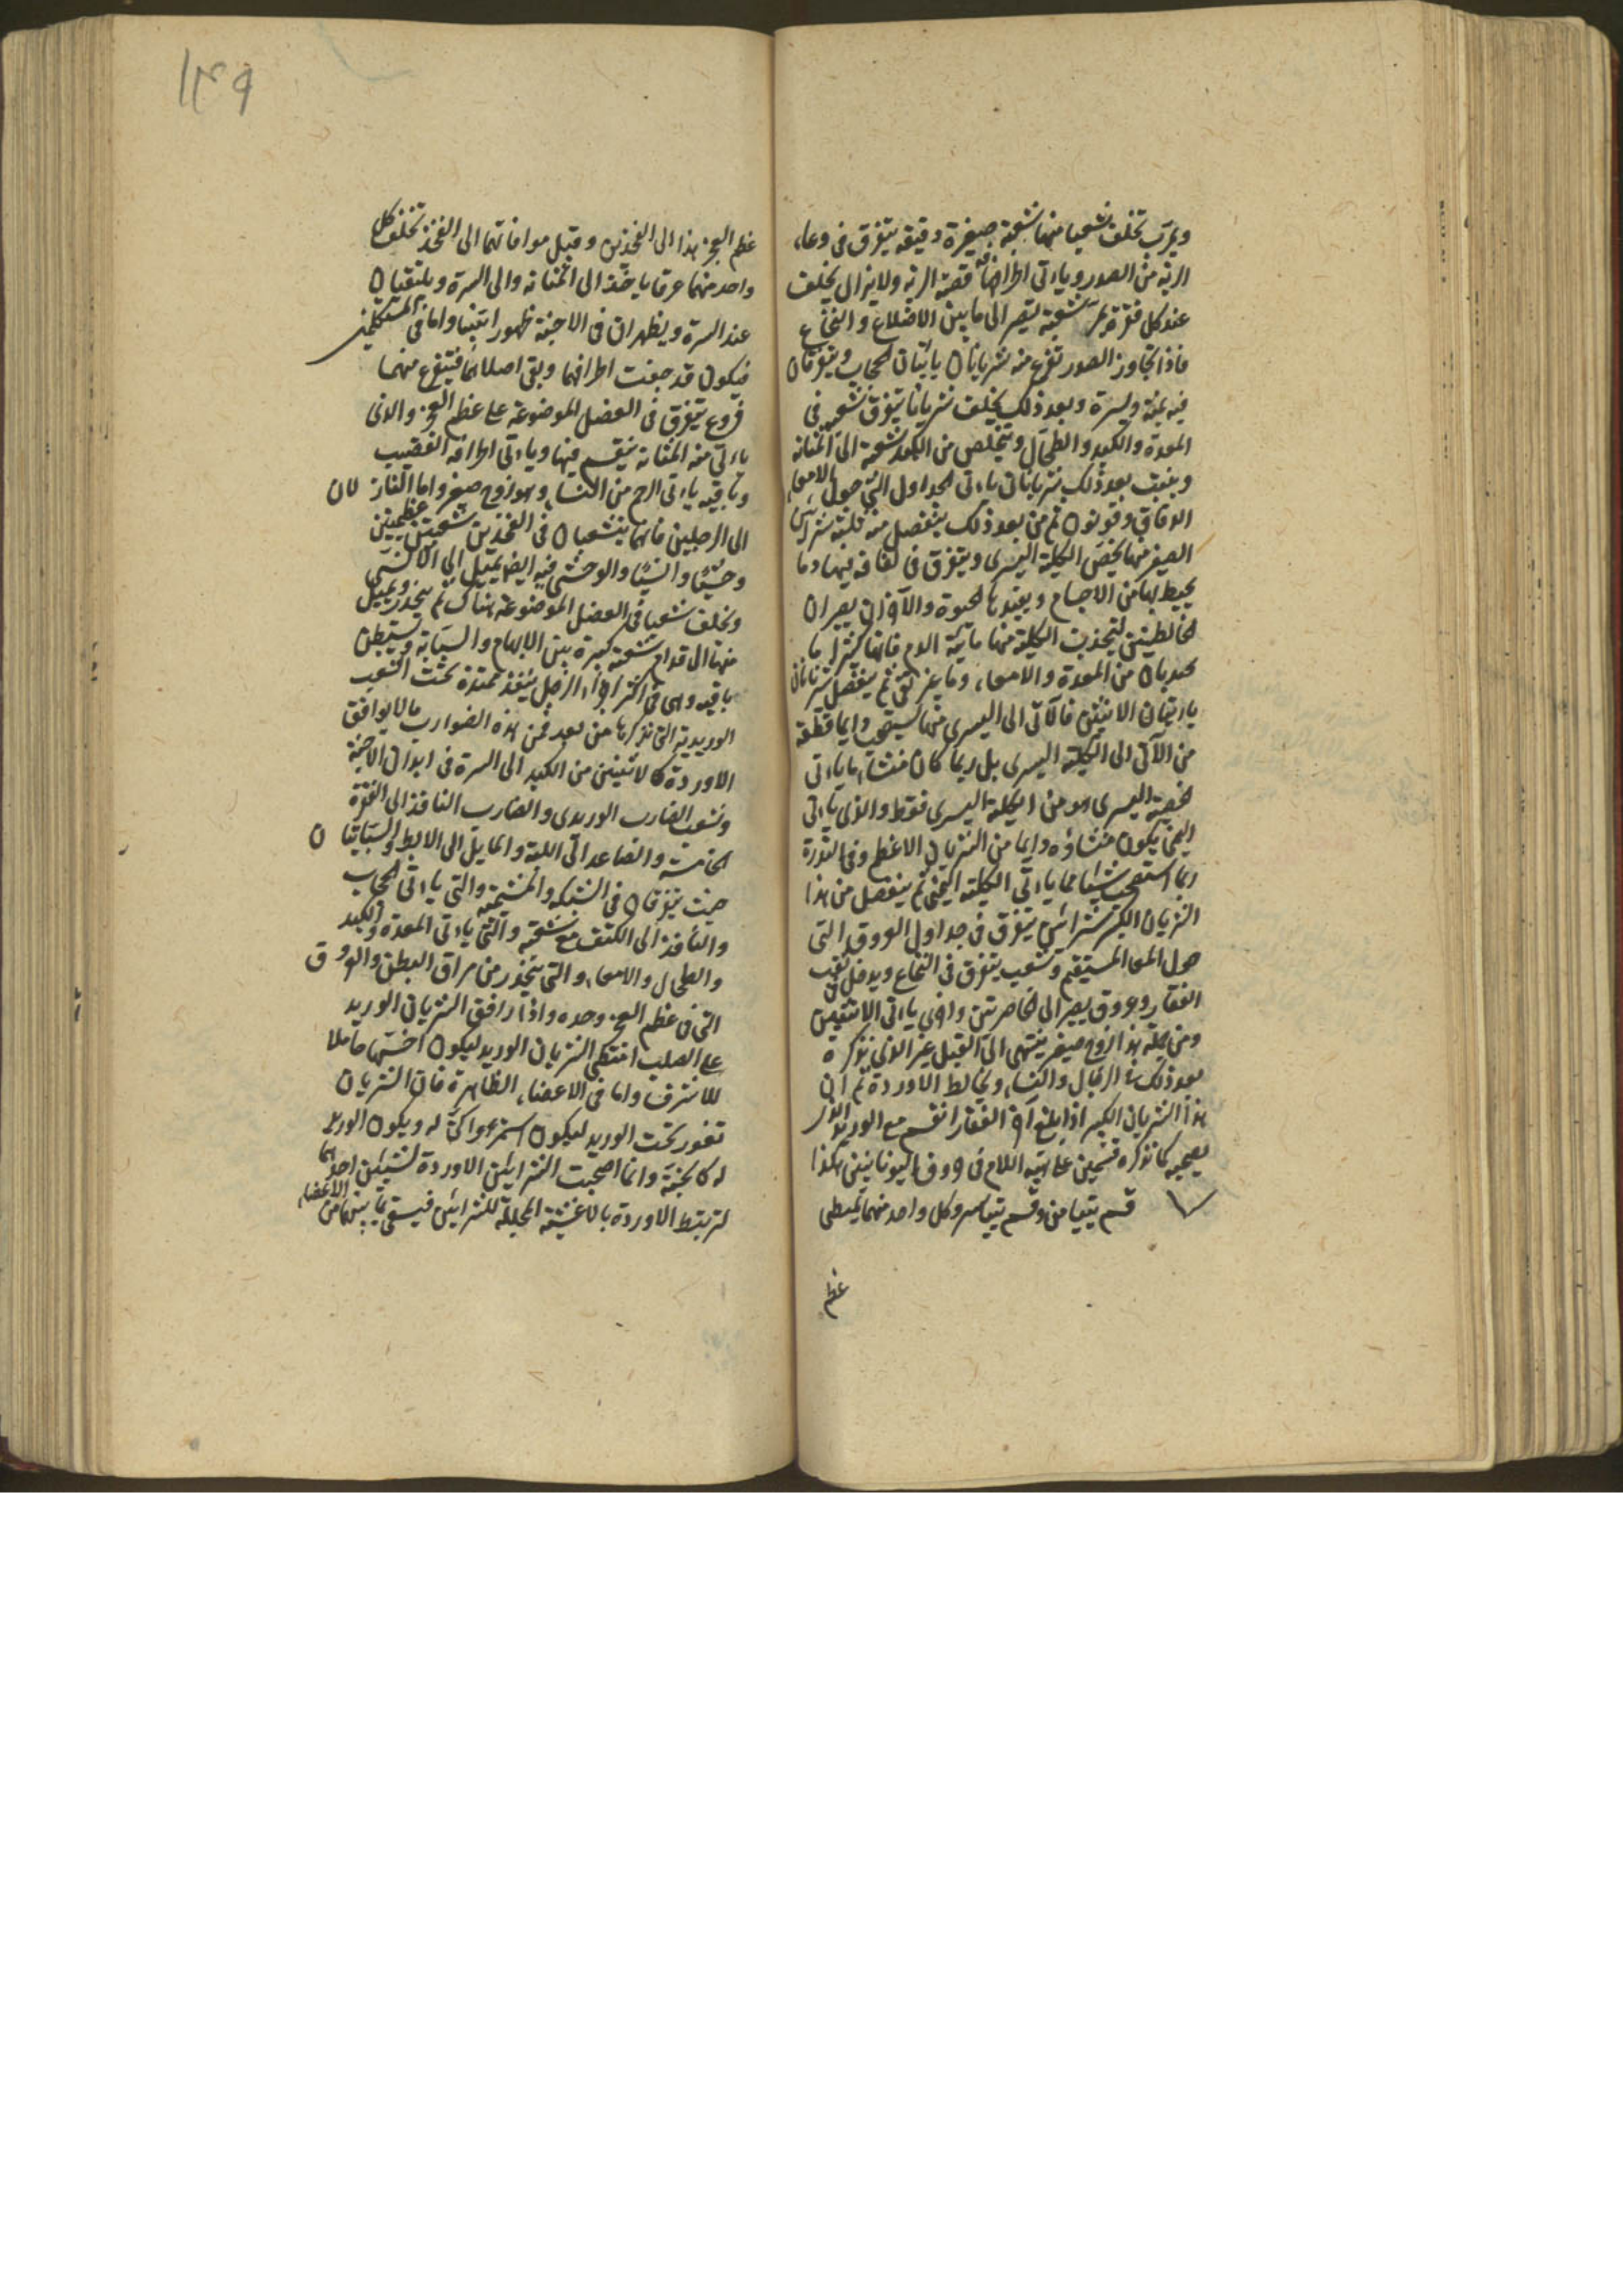 ويمر بها تخلف شعبا منها شعبة صغيرة دقيقة يتفرق في وعاء
الرية من الصدر وياتى اطرافها قصبة الرية ولا يزال يخلف
عند كل فقرة يمر شعبة يصير الى ما بين الاضلاع والنخاع
فاذا تجاوز الصدر تفرع منه شريانان ياتيان الحجاب ويتفرقان
فيه يمنة ويسرة وبعد ذلك يخلف شريانا يتفرق شعبه في
المعدة والكبد والطحال ويتخلص من الكبد شعبة الى المثانة
وينبت بعد ذلك شريانان ياتى الجداول التي حول الامعاء
الدقاق وقولون ثم من بعد ذلك ينفصل منه ثلثة شرايين
الصغير منها يخص الكلية اليسرى ويتفرق في لفافة فيها وما
يحيط بها من الاجسام ويفيدها الحيوة والآخران يصيران
الى الكليتين لتجذب الكلية منها مائية الدم فانها كثيرا ما
تجذبان من المعدة والامعاء دما غير نقى ثم ينفصل شريانان
ياتيان الانثيين فالآتى الى اليسرى منها يستصحب دايما قطعة
من الآتى الى الكلية اليسرى بل ربما كان منشاء ما ياتى
الخصية اليسرى هو من الكلية اليسرى فقط والذى ياتى
اليمنى يكون منشاؤه دايما من الشريان الاعظم وفى الندرة
ربما استصحب شيئا مما ياتى الكلية اليمنى ثم ينفصل من هذا
الشريان الكبير شرايين يتفرق في جداول العروق التى
حول المعا المستقيم وشعب يتفرق في النخاع ويدخل في ثقب
الفقار وعروق يصير الى الخاصرتين واخرى ياتى الانثيين
ومن جملة هذا زوج صغير ينتهى الى القبل غير الذى نذكره
بعد ذلك في الرجال والنساء ويخالط الاوردة ثم ان
هذا الشريان الكبير اذا بلغ آخر الفقار انقسم مع الوريد الذى
يصحبه كما نذكره قسمين على هيئة اللام في حروف اليونانيين هكذا
٨ قسم يتيامن وقسم يتياسر وكل واحد منهما يمتطى
عظم
١٤٩
عظم العجز هذا الى الفخذين وقبل موافاتهما الى الفخذ تخلف كل
واحد منهما عرقا ياخذ الى المثانة والى السرة ويلتقيان
عند السرة ويظهران في الاجنة ظهورا بينا واما في المستكملين
فيكون قد جفت اطرافهما وبقى اصلاهما فيتفرع منهما
فروع يتفرق في العضل الموضوعة على عظم العجز والذى
ياتى منه المثانة ينقسم فيها وياتى اطرافه القضيب
وباقيه ياتى الرحم من النساء وهو زوج صغير واما النازلان
الى الرجلين فانهما ينشعبان في الفخذين شعبتين عظيمتين
وحشيا وانسيا والوحشى فيه ايضا يميل الى الانسى
ويخلف شعبا في العضل الموضوعة هناك ثم ينحدر ويميل
منها الى قدام شعبة كبيرة بين الابهام والسبابة ويستبطن
باقيه وهى في اكثر اجزاء الرجل ينفذ ممتدة تحت الشعب
الوريدية التى نذكرها من بعد فمن هذه الضوارب ما لا يوافق
الاوردة كالاتيين من الكبد الى السرة في ابدان الاجنة
وشعب الضارب الوريدى والضارب النافذ الى الفقرة
الخامسة والصاعد الى اللبة والمايل الى الابط والسباتيان
حيث يتفرقان في الشبكة والمشيمة والتى ياتى الحجاب
والنافذ الى الكتف مع شعبته والتى ياتى المعدة والكبد
والطحال والامعاء والتى ينحدر من مراق البطن والعروق
التى في عظم العجز وحده واذا رافق الشريان الوريد
على الصلب امتطى الشريان الوريد ليكون اخسهما حاملا
للاشرف واما في الاعضاء الظاهرة فان الشريان
تغور تحت الوريد ليكون استر واكن له ويكون الوريد
له كالجنة وانما اصحبت الشرايين الاوردة لشيئين احدهما
لتربتط الاوردة بالاغشية المجللة للشرايين فيستقى مما بينهما من الاعضاء